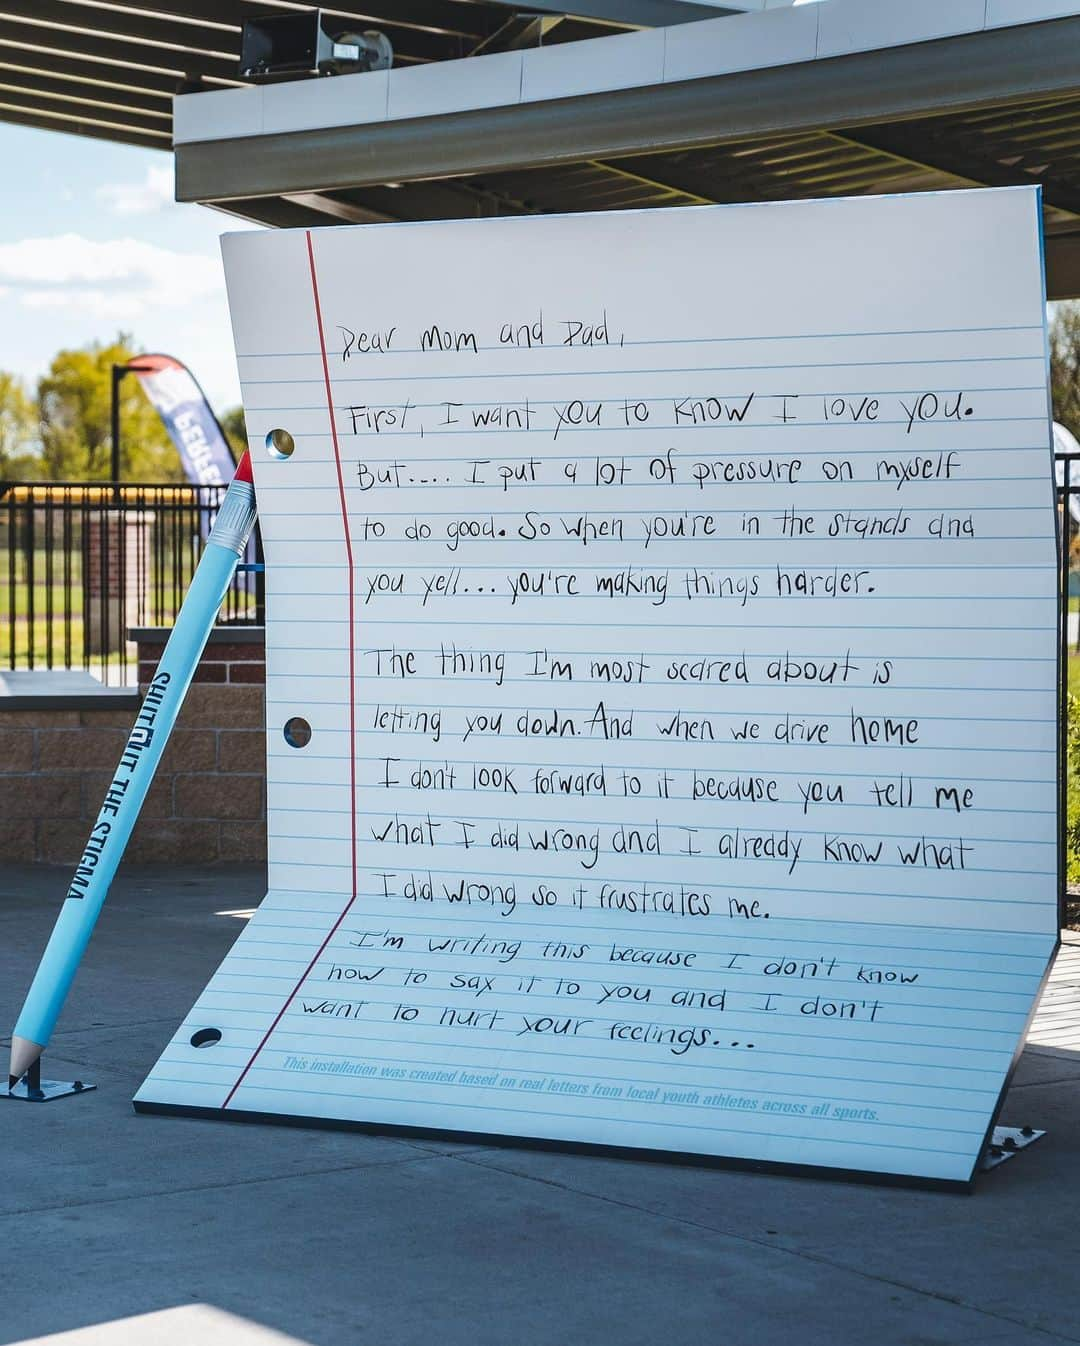 Dear Mom and Dad,
First, I want you to know I love you.
But.... I put a lot of pressure on myself
to do good. So when you're in the stands and
you yell... you're making things harder.
The thing I'm most scared about is
letting you down. And when we drive home
I don't look forward to it because you tell me
what I did wrong and I already know what
I did wrong so it frustrates me.
I'm writing this because I don't know
how to say it to you and I don't
want to hurt your feelings...
This installation was created based on real letters from local youth athletes across all sports.
SHUTOUT THE STIGMA